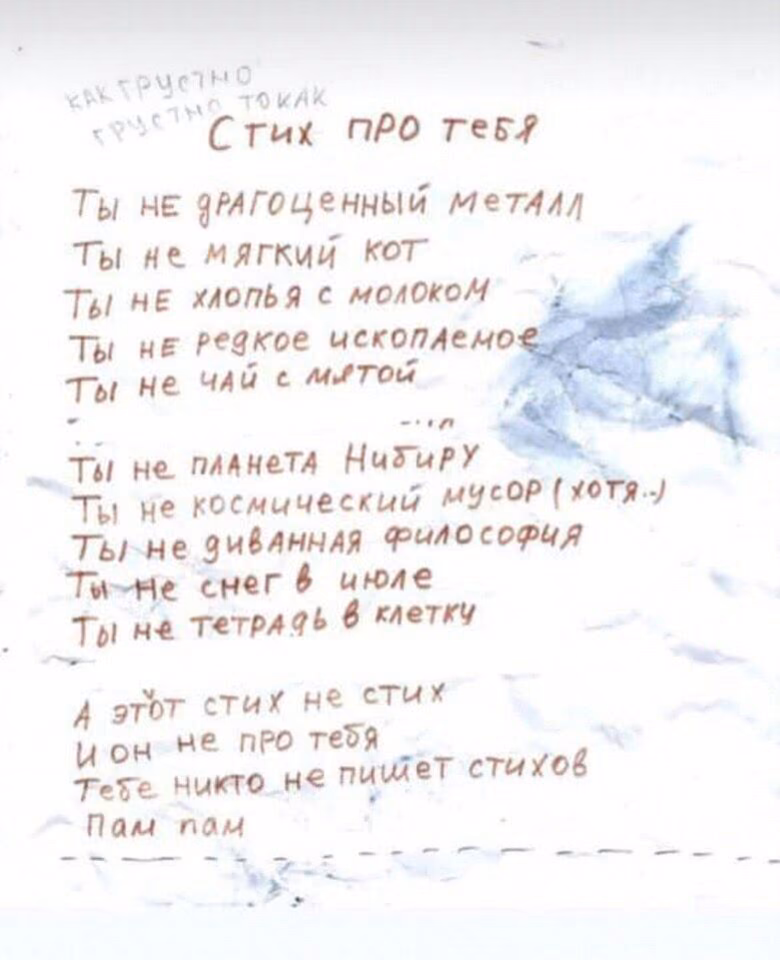 как грустно
грустно то как
Стих про тебя
Ты не драгоценный металл
Ты не мягкий кот
Ты не хлопья с молоком
Ты не редкое ископаемое
Ты не чай с мятой
Ты не планета Нибиру
Ты не космический мусор (хотя..)
Ты не диванная философия
Ты не снег в июле
Ты не тетрадь в клетку
А этот стих не стих
И он не про тебя
Тебе никто не пишет стихов
Пам пам